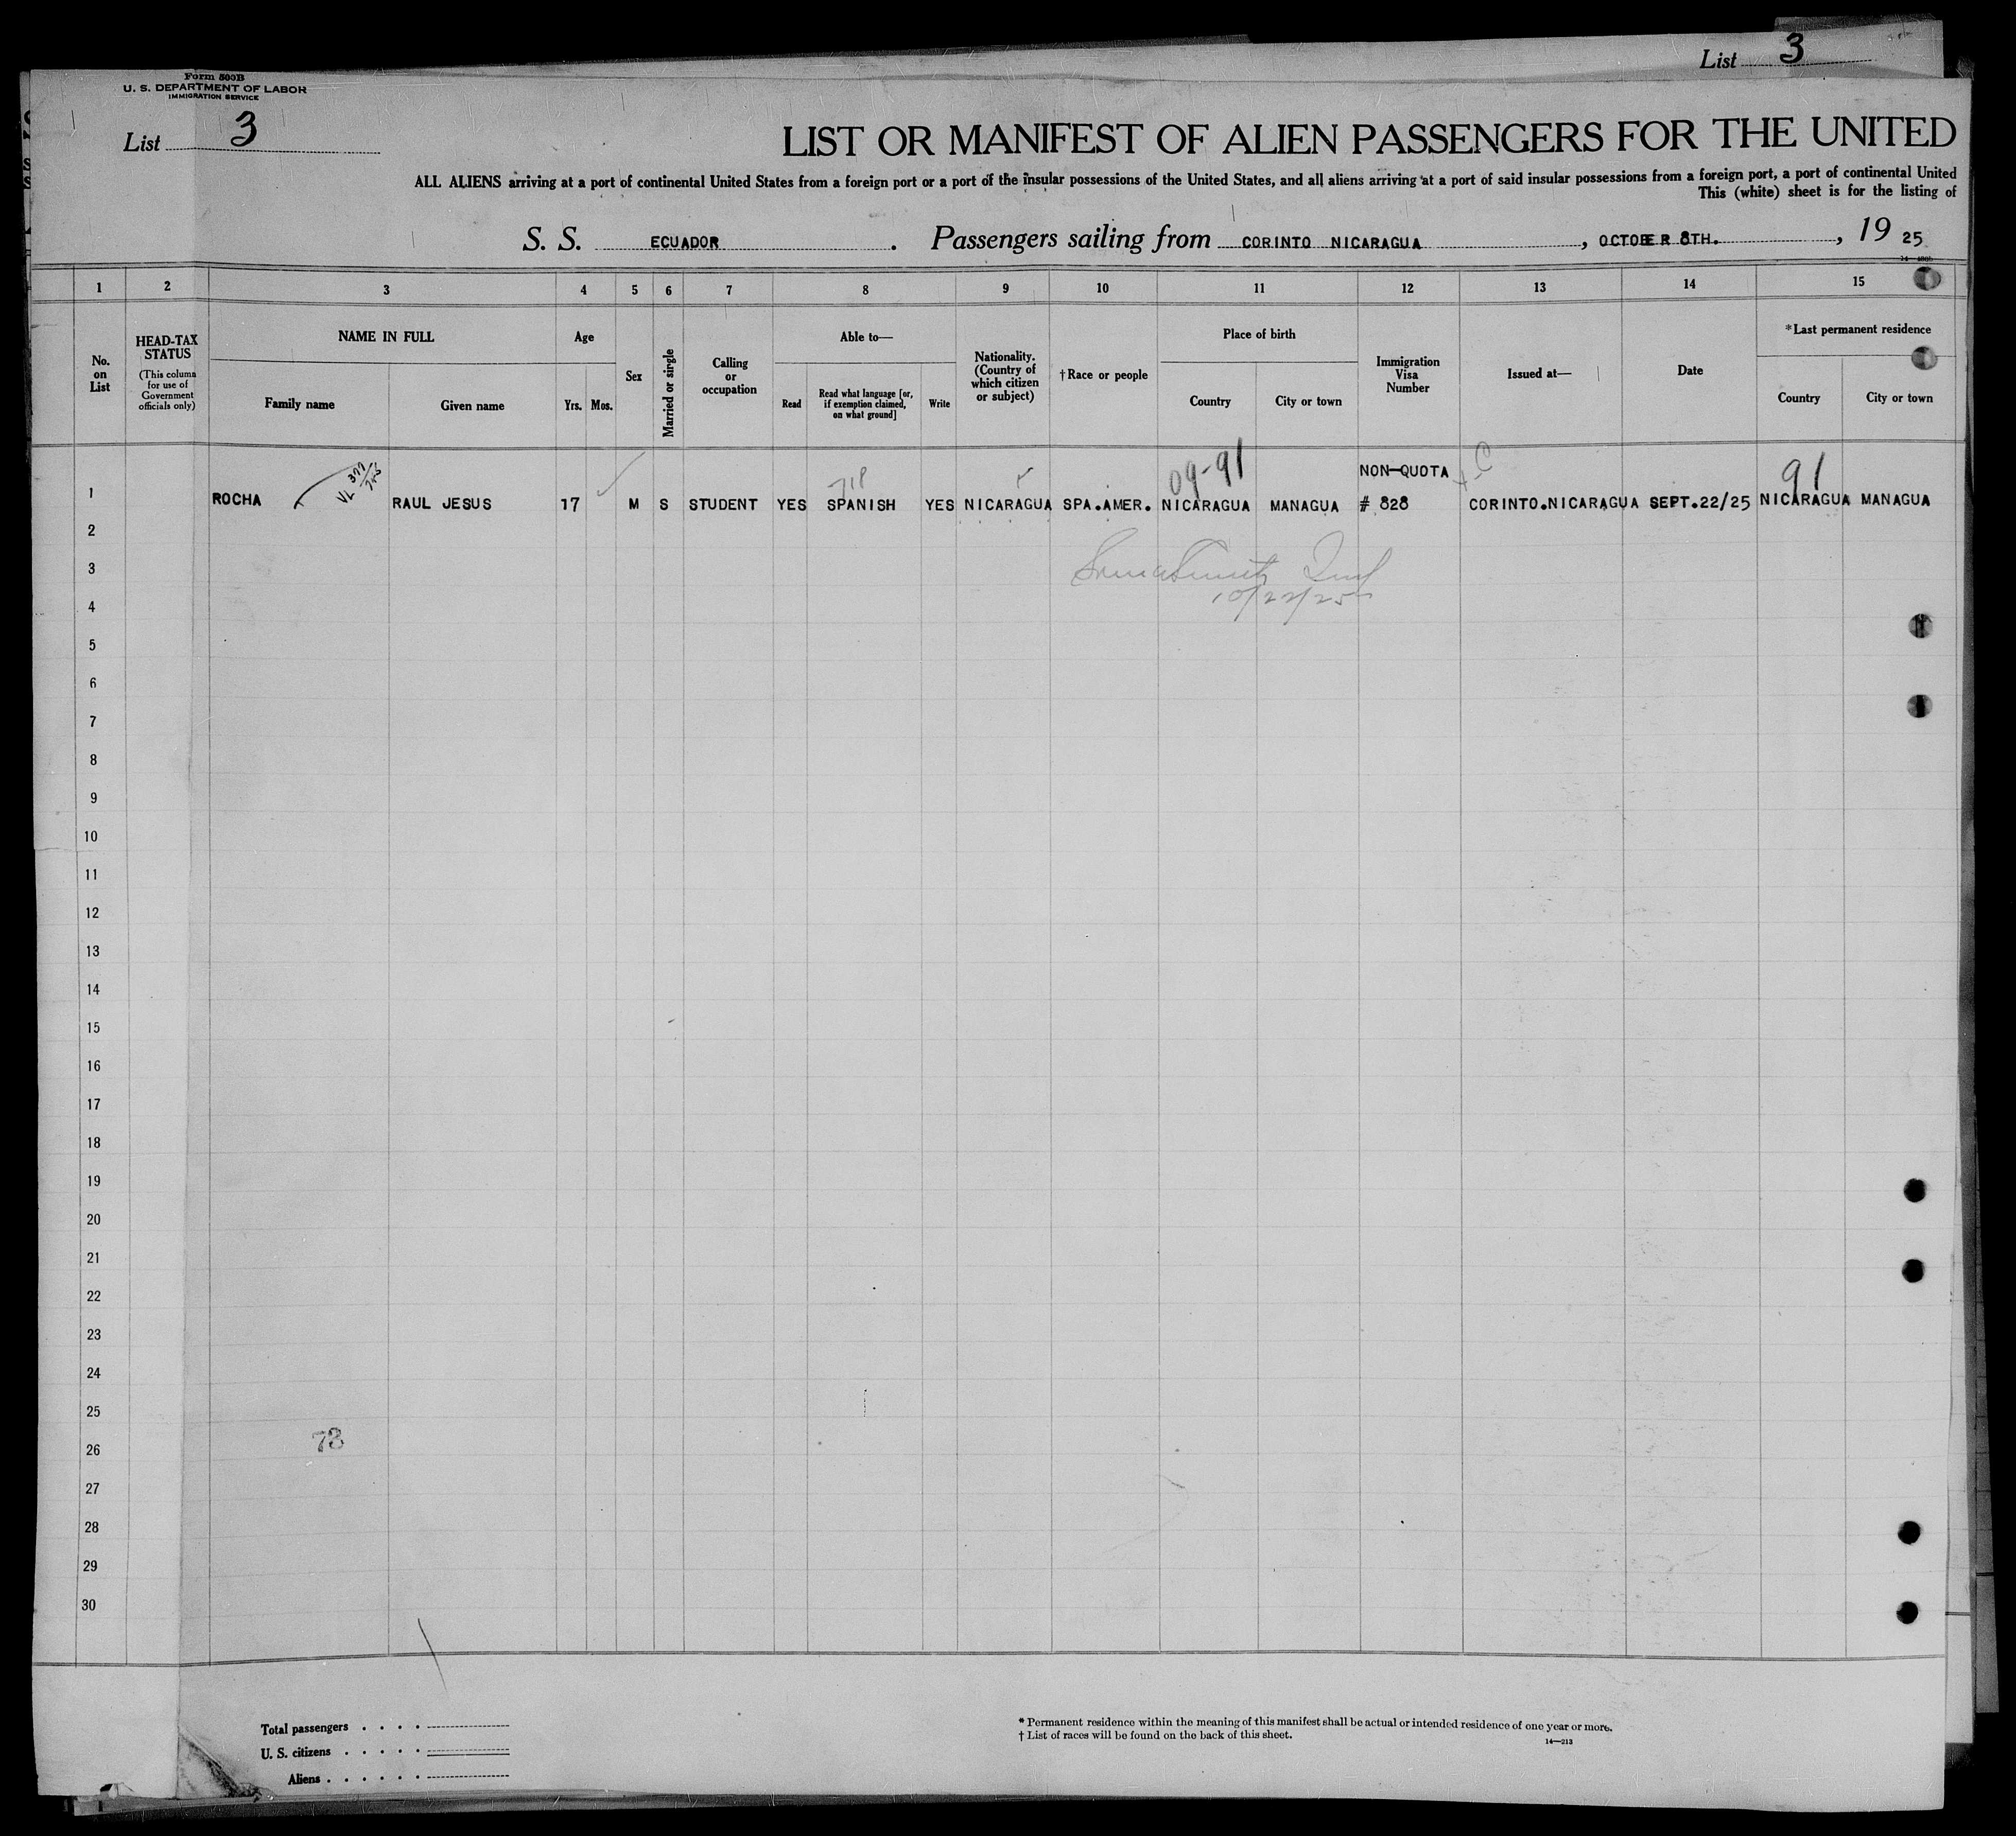 List 3
Form 500B
U. S. DEPARTMENT OF LABOR
IMMIGRATION SERVICE
List 3
LIST OR MANIFEST OF ALIEN PASSENGERS FOR THE UNITED
ALL ALIENS arriving at a port of continental United States from a foreign port or a port of the insular possessions of the United States, and all aliens arriving at a port of said insular possessions from a foreign port, a port of continental United
This (white) sheet is for the listing of
S. S. ECUADOR. Passengers sailing from CORINTO NICARAGUA, OCTOBER 8TH., 19 25
1 2 3 4 5 6 7 8 9 10 11 12 13 14 15
No. on List
HEAD-TAX STATUS
(This column for use of Government officials only)
NAME IN FULL
Family name
Given name
Age
Yrs. Mos.
Sex
Married or single
Calling or occupation
Able to—
Read
Read what language [or, if exemption claimed, on what ground]
Write
Nationality. (Country of which citizen or subject)
†Race or people
Place of birth
Country
City or town
Immigration Visa Number
Issued at—
Date
*Last permanent residence
Country
City or town
VL 377/
09-91
NON-QUOTA
91
1 ROCHA RAUL JESUS 17 M S STUDENT YES SPANISH YES NICARAGUA SPA.AMER. NICARAGUA MANAGUA # 828 CORINTO.NICARAGUA SEPT.22/25 NICARAGUA MANAGUA
2
3
4 10/22/25
5
6
7
8
9
10
11
12
13
14
15
16
17
18
19
20
21
22
23
24
25
73
26
27
28
29
30
Total passengers . . . .
U. S. citizens . . . . .
Aliens . . . . . .
* Permanent residence within the meaning of this manifest shall be actual or intended residence of one year or more.
† List of races will be found on the back of this sheet.
14—213